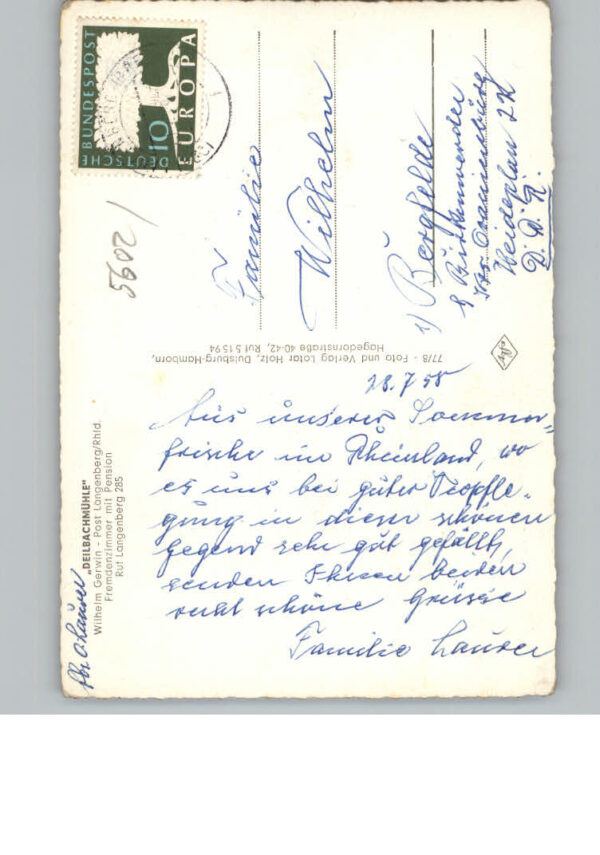 "DEILBACHMÜHLE"
Wilhelm Gerwin - Post Langenberg/Rhld.
Fremdenzimmer mit Pension
Ruf Langenberg 285
28.7.58
Aus unserer Sommer-
frische im Rheinland, wo
es uns bei guter Verpfle-
gung in dieser schönen
Gegend sehr gut gefällt,
senden Ihnen beiden
recht schöne Grüsse
Familie Lauser
77/8 - Foto und Verlag Lotar Holz, Duisburg-Hamborn,
Hagedornstraße 40-42, Ruf 51594
DEUTSCHE BUNDESPOST
10
EUROPA
5602/
Familie
Wilhelm
1) Bergfelde
b Birkenwerder
Krs. Oranienburg
Heideplan 22
D. D. R.
Agfa